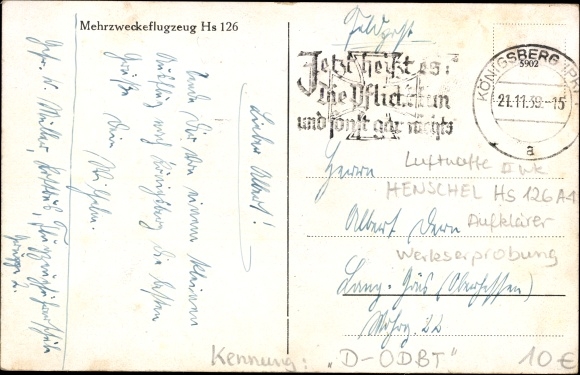 Mehrzweckeflugzeug Hs 126
Feldpost
Jetzt heißt es:
Die Pflicht tun
und sonst gar nichts
KÖNIGSBERG (PR)
5902
21.11.39.-15
a
Lieber Albert!
Sende Dir von einem kleinen
Ausflug nach Königsberg die besten
Grüße Dein Wilhelm.
Gefr. W. Müller
Herrn
Albert Dern
Lang-Göns (Oberhessen)
22
Luftwaffe II wk
HENSCHEL Hs 126 A1
Aufklärer
Werkserprobung
Kennung: "D-ODBT"
10 €